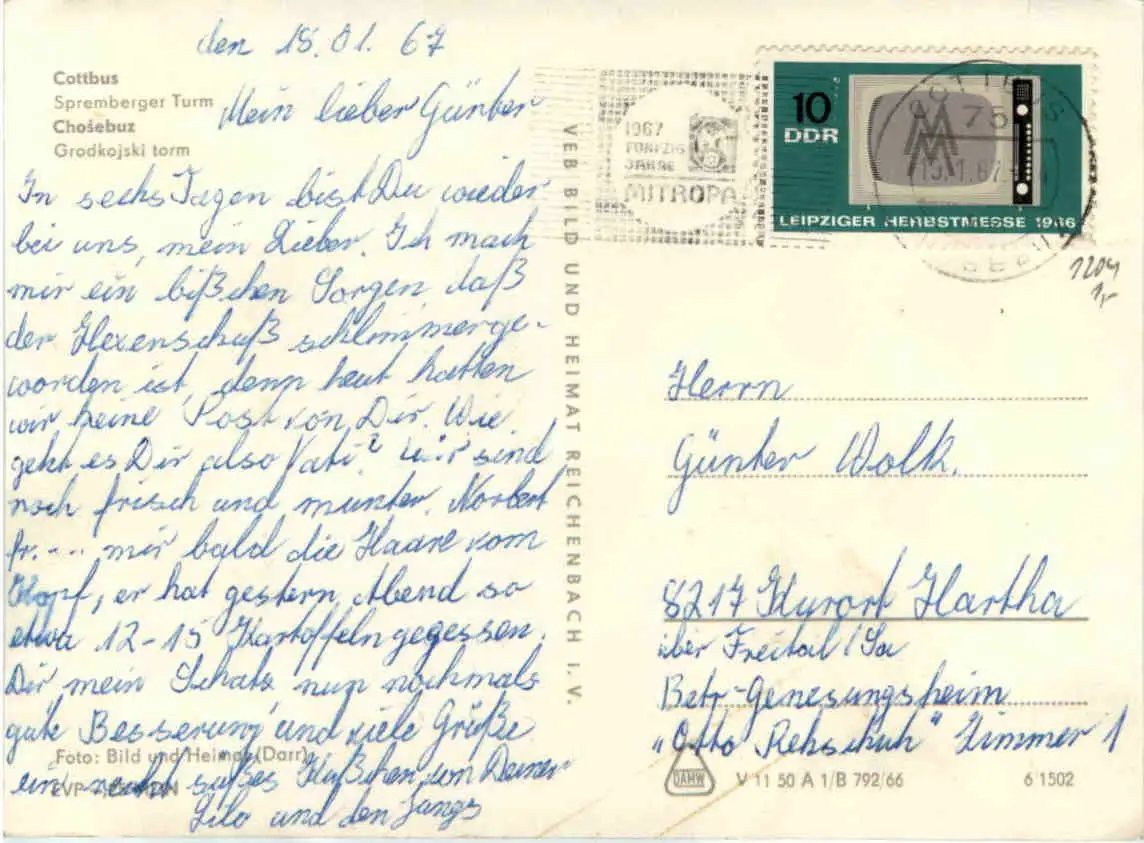 den 18.01.67
Cottbus
Spremberger Turm
Chośebuz
Grodkojski torm
Mein lieber Günter
In sechs Tagen bist Du wieder
bei uns, mein Lieber. Ich mach
mir ein bißchen Sorgen, daß
der Hexenschuß schlimmerge-
worden ist, denn heut hatten
wir keine Post von Dir. Wie
geht es Dir also Vati? Wir sind
noch frisch und munter. Norbert
fr.... mir bald die Haare vom
Kopf, er hat gestern Abend so
etwa 12-15 Kartoffeln gegessen.
Dir mein Schatz nun nochmals
gute Besserung und viele Grüße
ein süßes Küßchen von Deiner
Lilo und den Jungs
Foto: Bild und Heimat (Darr)
EVP
VEB BILD UND HEIMAT REICHENBACH I. V.
1967
FÜNFZIG
JAHRE
MITROPA
10
DDR
LEIPZIGER HERBSTMESSE 1966
COTTBUS
75
1204
Herrn
Günter Wolk.
8217 Kurort Hartha
über Freital/Sa
Betr-Genesungsheim
"Otto Rehschuh" Zimmer 1
DAMW
V 11 50 A 1/B 792/66
6 1502